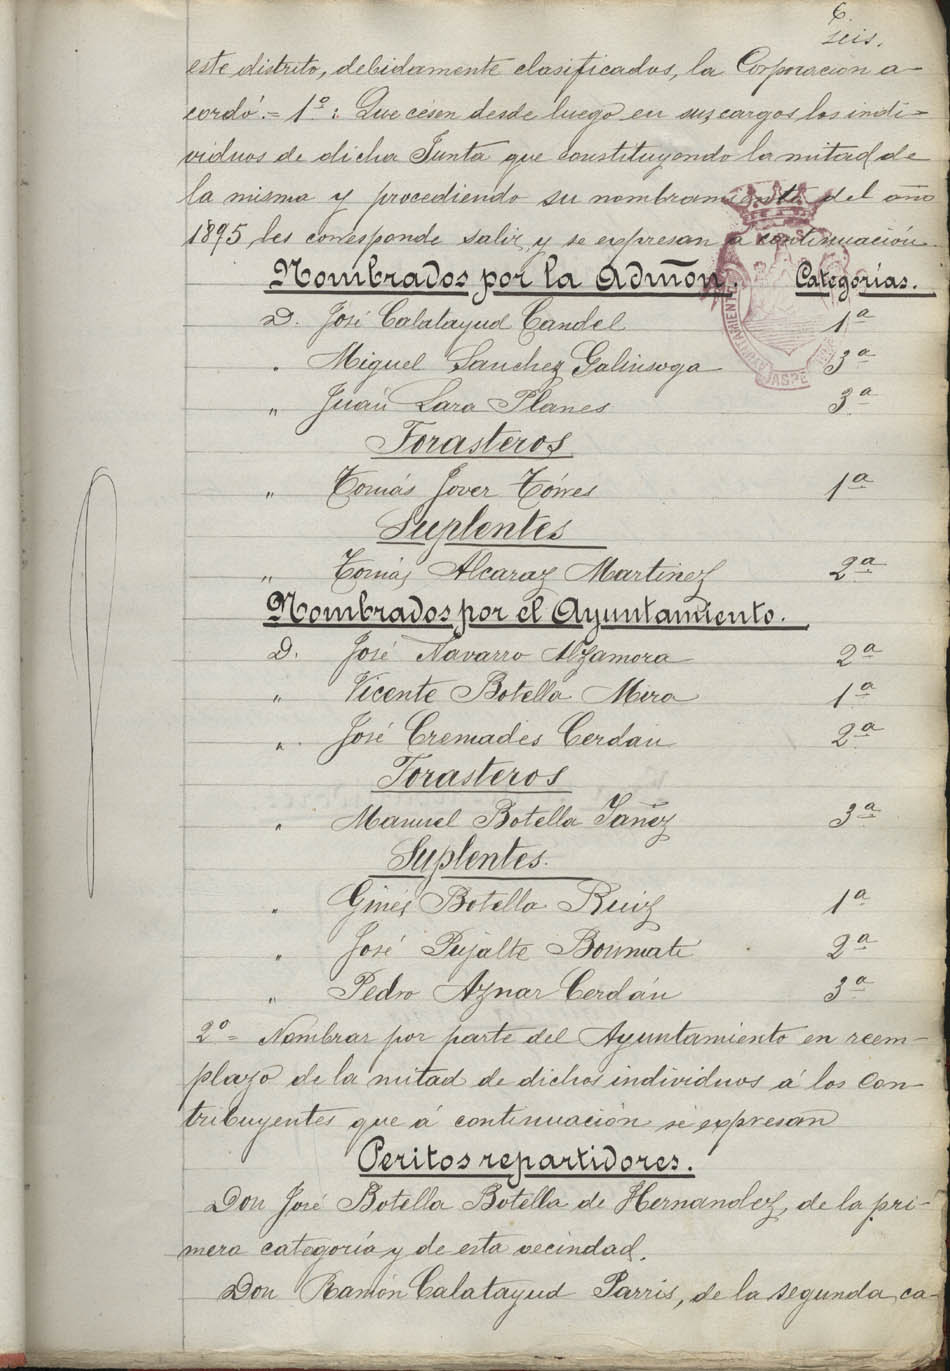 6
seis.
este distrito, debidamente clasificados, la Corporación a-
cordó:= 1º: Que cesen desde luego en sus cargos los indi=
viduos de dicha Junta que constituyendo la mitad de
la misma y procediendo su nombramiento del año
1895 les corresponde salir y se expresan a continuación
Nombrados por la Admōn. Categorías.
D. José Calatayud Candel 1ª
" Miguel Sanchez Galinsoga 3ª
" Juán Lara Planes 3ª
Forasteros
" Tomás Jover Tórres 1ª
Suplentes
" Tomás Alcaraz Martinez 2ª
Nombrados por el Ayuntamiento.
D. José Navarro Alzamora 2ª
" Vicente Botella Mira 1ª
" José Cremades Cerdán 2ª
Forasteros
" Manuel Botella Yañez 3ª
Suplentes.
" Ginés Botella Ruiz 1ª
" José Pujalte Boumati 2ª
" Pedro Aznar Cerdán 3ª
2º= Nombrar por parte del Ayuntamiento en reem-
plazo de la mitad de dichos individuos á los Con-
tribuyentes que á continuación se expresan
Peritos repartidores.
Don José Botella Botella de Hernandez, de la pri-
mera categoría y de esta vecindad.
Don Ramón Calatayud Parris, de la segunda ca-
AYUNTAMIENTO
JASPE